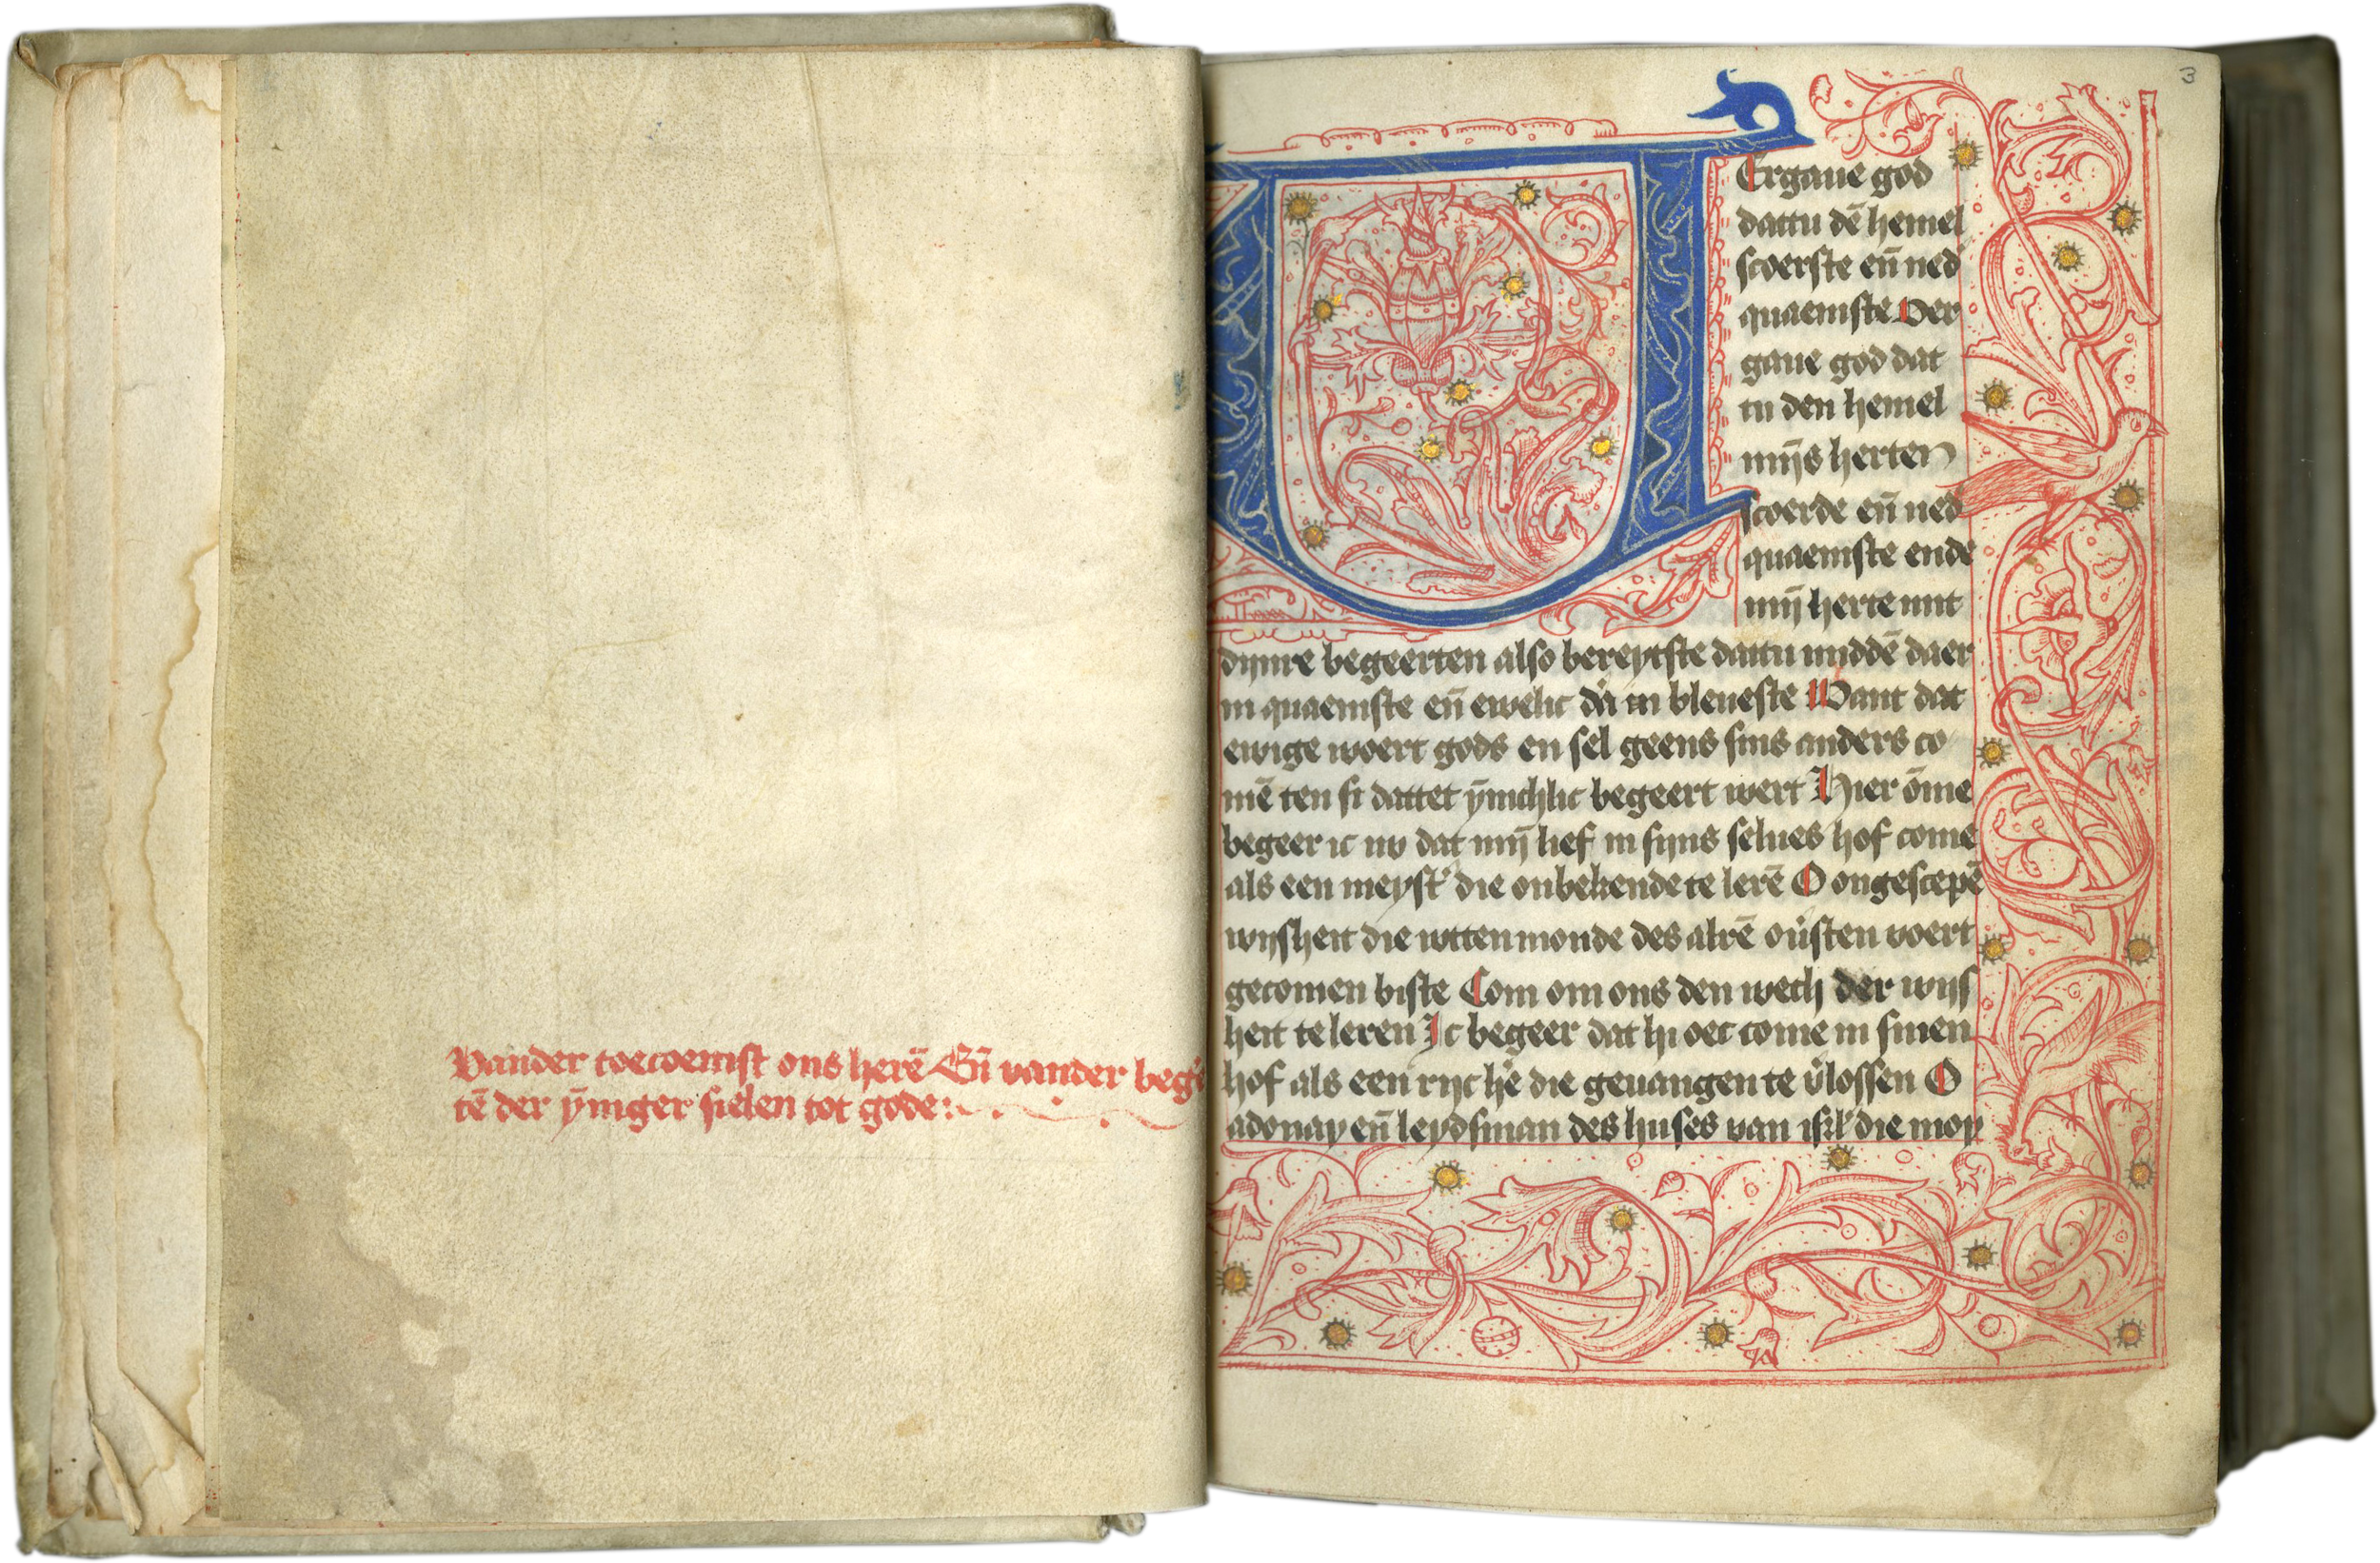 Vander toecoemst ons herē Eñ vander beg'e
tē der ȳniger sielen tot gode:
3
VErgaue god
dattu dē hemel
scoerste eñ ned
quaemste Ver
gaue god dat
tu den hemel
mijs herten
scoerde eñ ned
quaemste ende
mij herte mit
dijnre begeerten also bereytste dattu middē daer
in quaemste eñ ewelic da in bleueste Want dat
ewige woert gods en sel geens sins anders co
mē ten si dattet ȳnichlic begeert wert Hier ōme
begeer ic nv dat mij lief in sijns selues hof come
als een meyst' die onbekende te lerē O ongescepē
wijsheit die wtten monde des alrē ou'sten voert
gecomen biste Com om ons den wech der wijs
heit te leren Ic begeer dat hi oec come in sinen
hof als een ryc hē die geuangen te v'lossen O
adonay eñ leydsman des huses van isrl' die moy